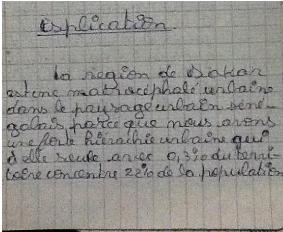 Explication
La region de Dakar
est une macrocéphale urbaine
dans le paysage urbain séné-
galais parce que nous avons
une forte hiérachie urbaine qui
d'elle seule avec 0,3% du terri-
toire concentre 22% de la population